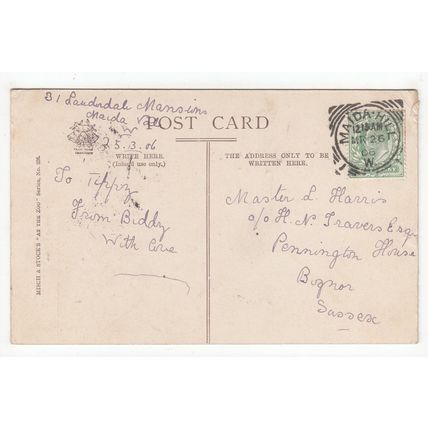 31 Lauderdale Mansions
Maida Vale
W
POST CARD
25.3.06
WRITE HERE.
(Inland use only.)
THE ADDRESS ONLY TO BE
WRITTEN HERE.
To Tippy
From Biddy
With love
Master L. Harris
c/o H. N. Travers Esqr
Pennington House
Bognor
Sussex
MAIDA-HILL
12.15AM
MR 26
06
W
MISCH & STOCK'S "AT THE ZOO" Series, No.